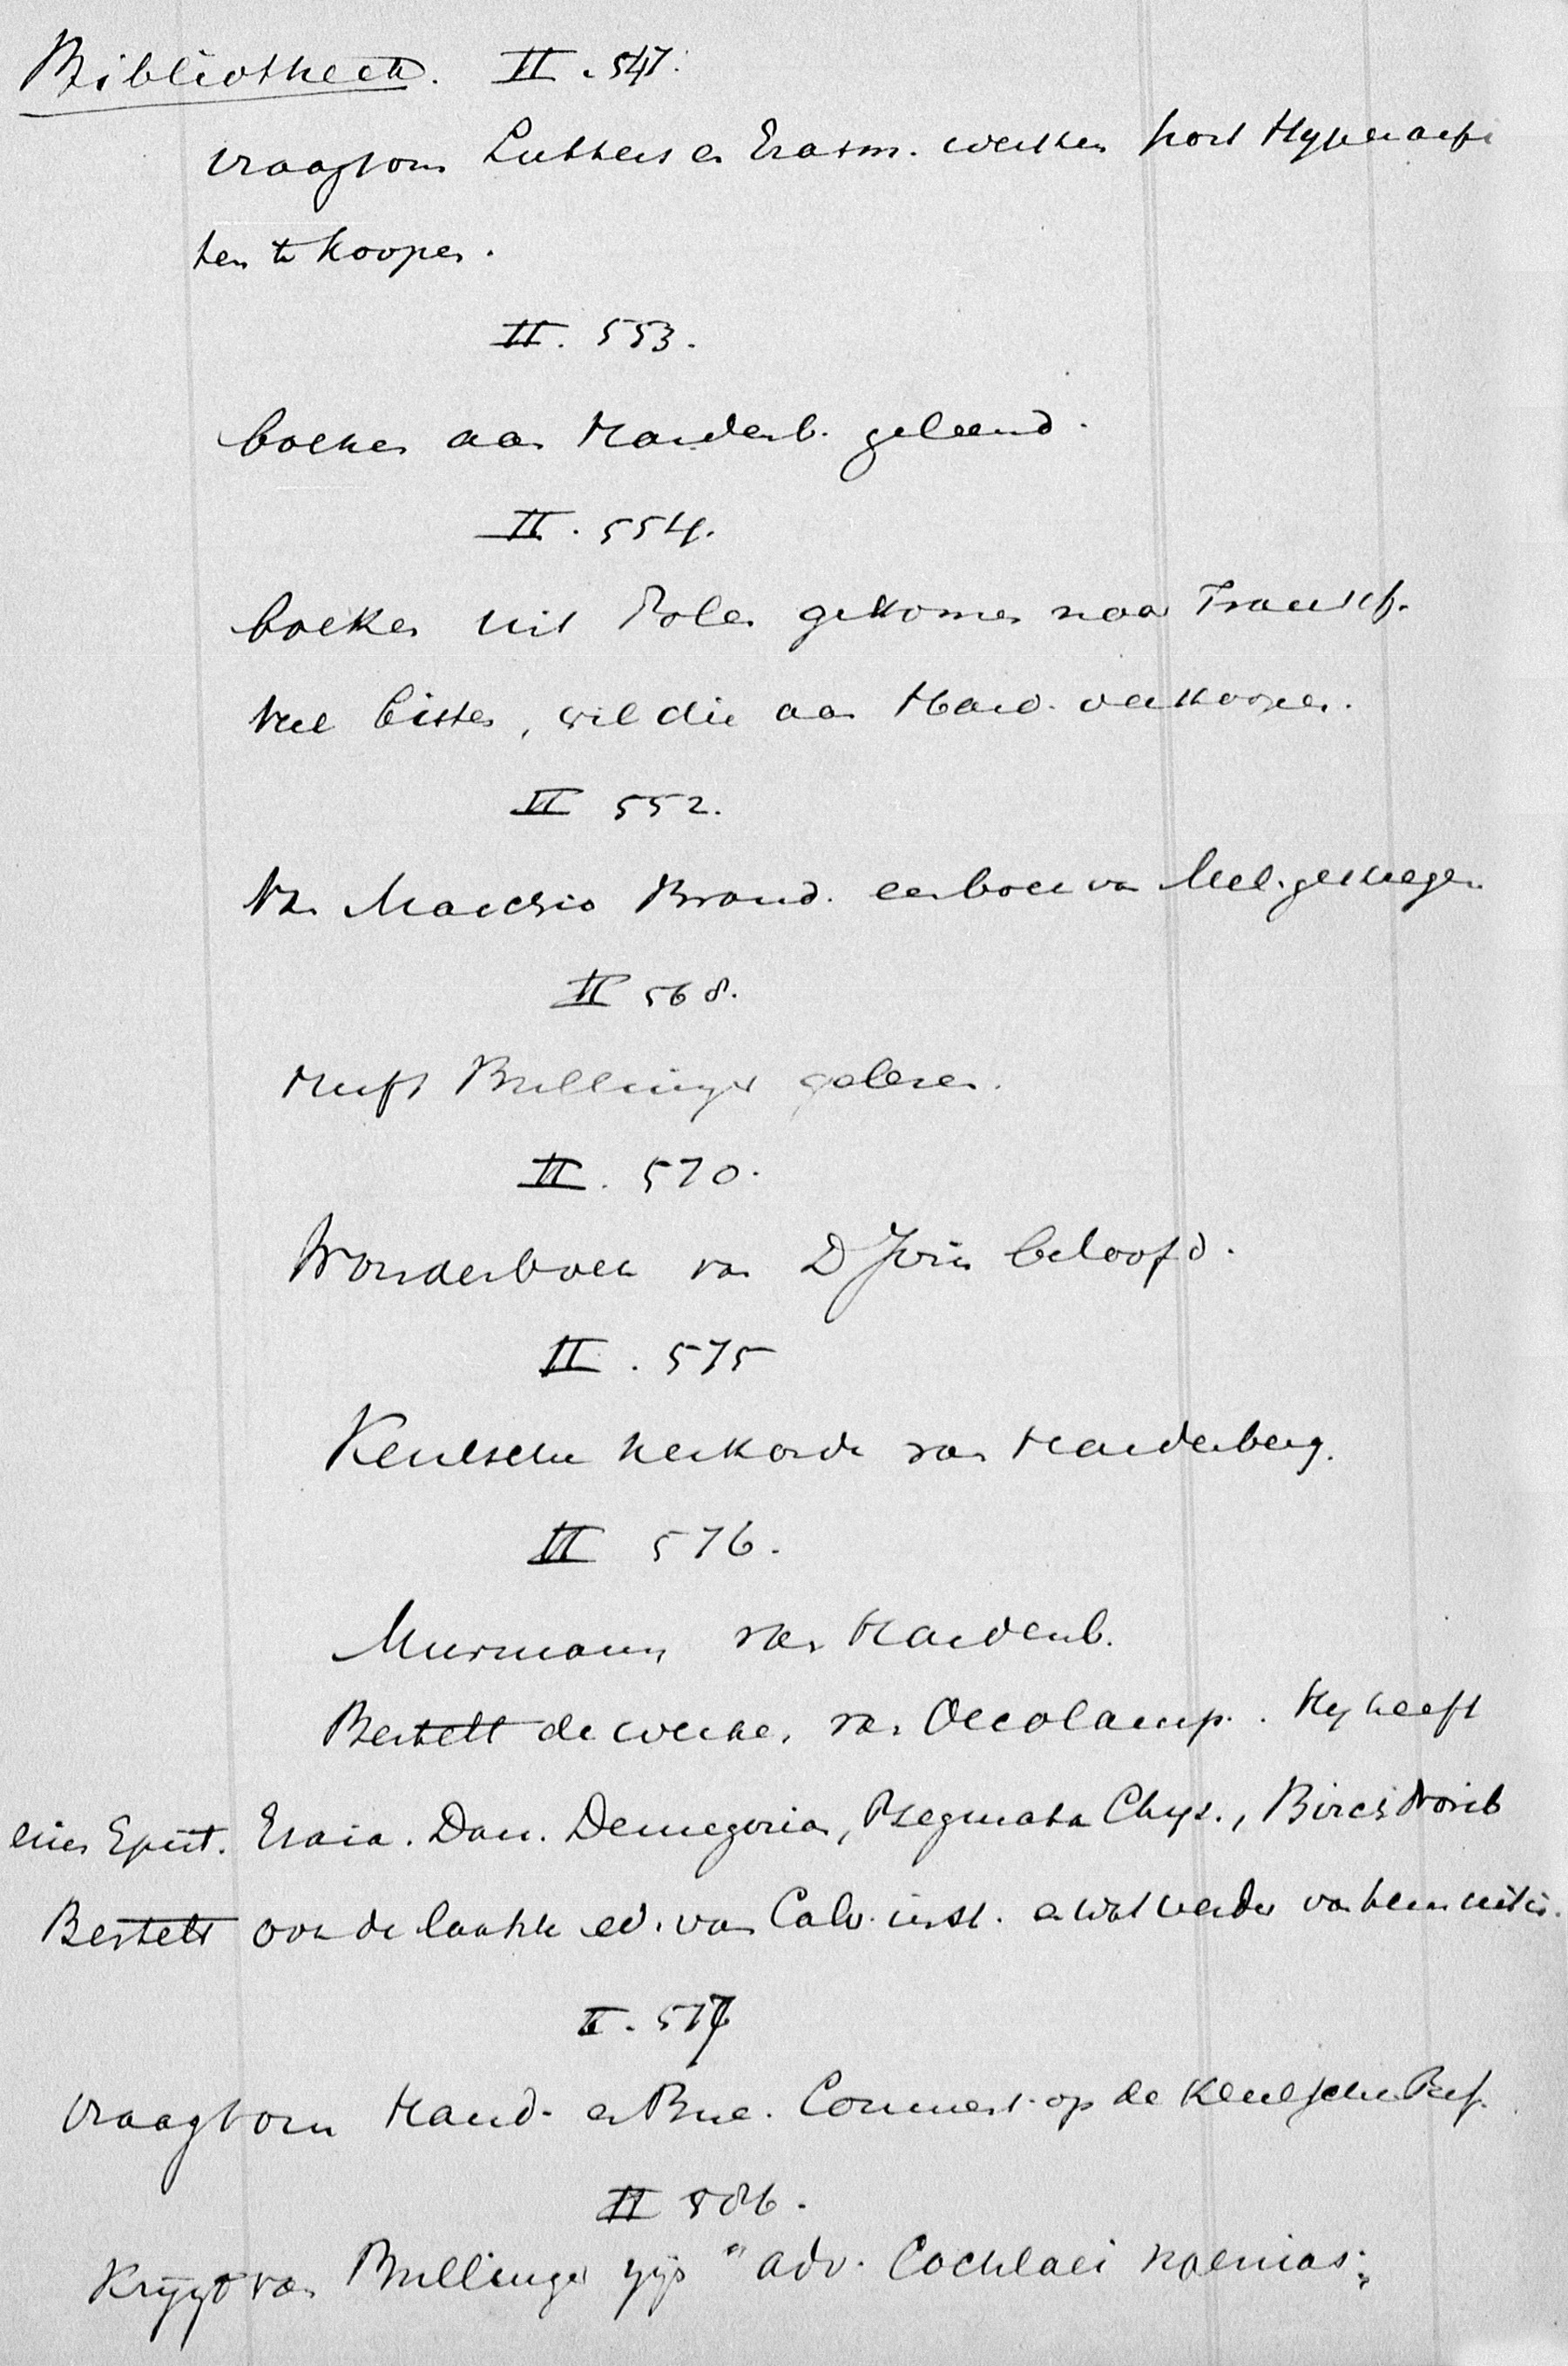 Bibliotheek. II. 547.
vraagt om Luthers en Erasm. werken voor Hyperaspi
ten te koopen.
II. 553.
boeken aan Hardenb. geleend.
II. 554.
boeken uit Polen gekomen naar Francf.
veel bisten, wil die aan Hard. verkoopen.
II 552.
V. Marchio Brand. een boek van Mel. gekregen
II 568.
Heeft Bullinger gelezen.
II. 570.
Wonderboek van D Joris beloofd.
II. 575
Keulsche van Hardenberg.
II 576.
Musmann van Hardenb.
Bestelt de werken van Oecolamp. Hy heeft
eius Epist. Esaia. Dan. Demegorias, Psegmata Chrys.,
Bestelt ook de laatste ed. van Calv. inst. en wat verder van hem uit is.
II. 577
vraagt om Hard. en Buc. Comment. op de Keulsche Ref.
II 586.
Krijgt van Bullinger zijn "adv. Cochlaei